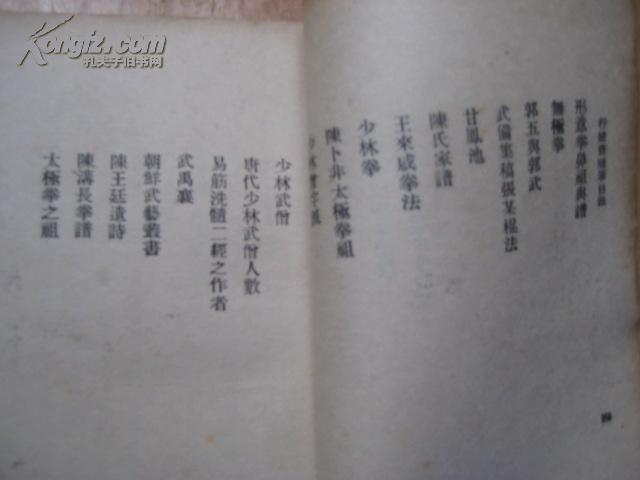 Kongfz.com
孔夫子旧书网
行健齋隨筆目錄
形意拳鼻祖與譜
無極拳
郭五與郭武
武備集稿張某棍法
甘鳳池
陳氏家譜
王來咸拳法
少林拳
陳卜非太極拳祖
少林
四
少林武僧
唐代少林武僧人數
易筋洗髓二經之作者
武禹襄
朝鮮武藝叢書
陳王廷遺詩
陳溝長拳譜
太極拳之祖